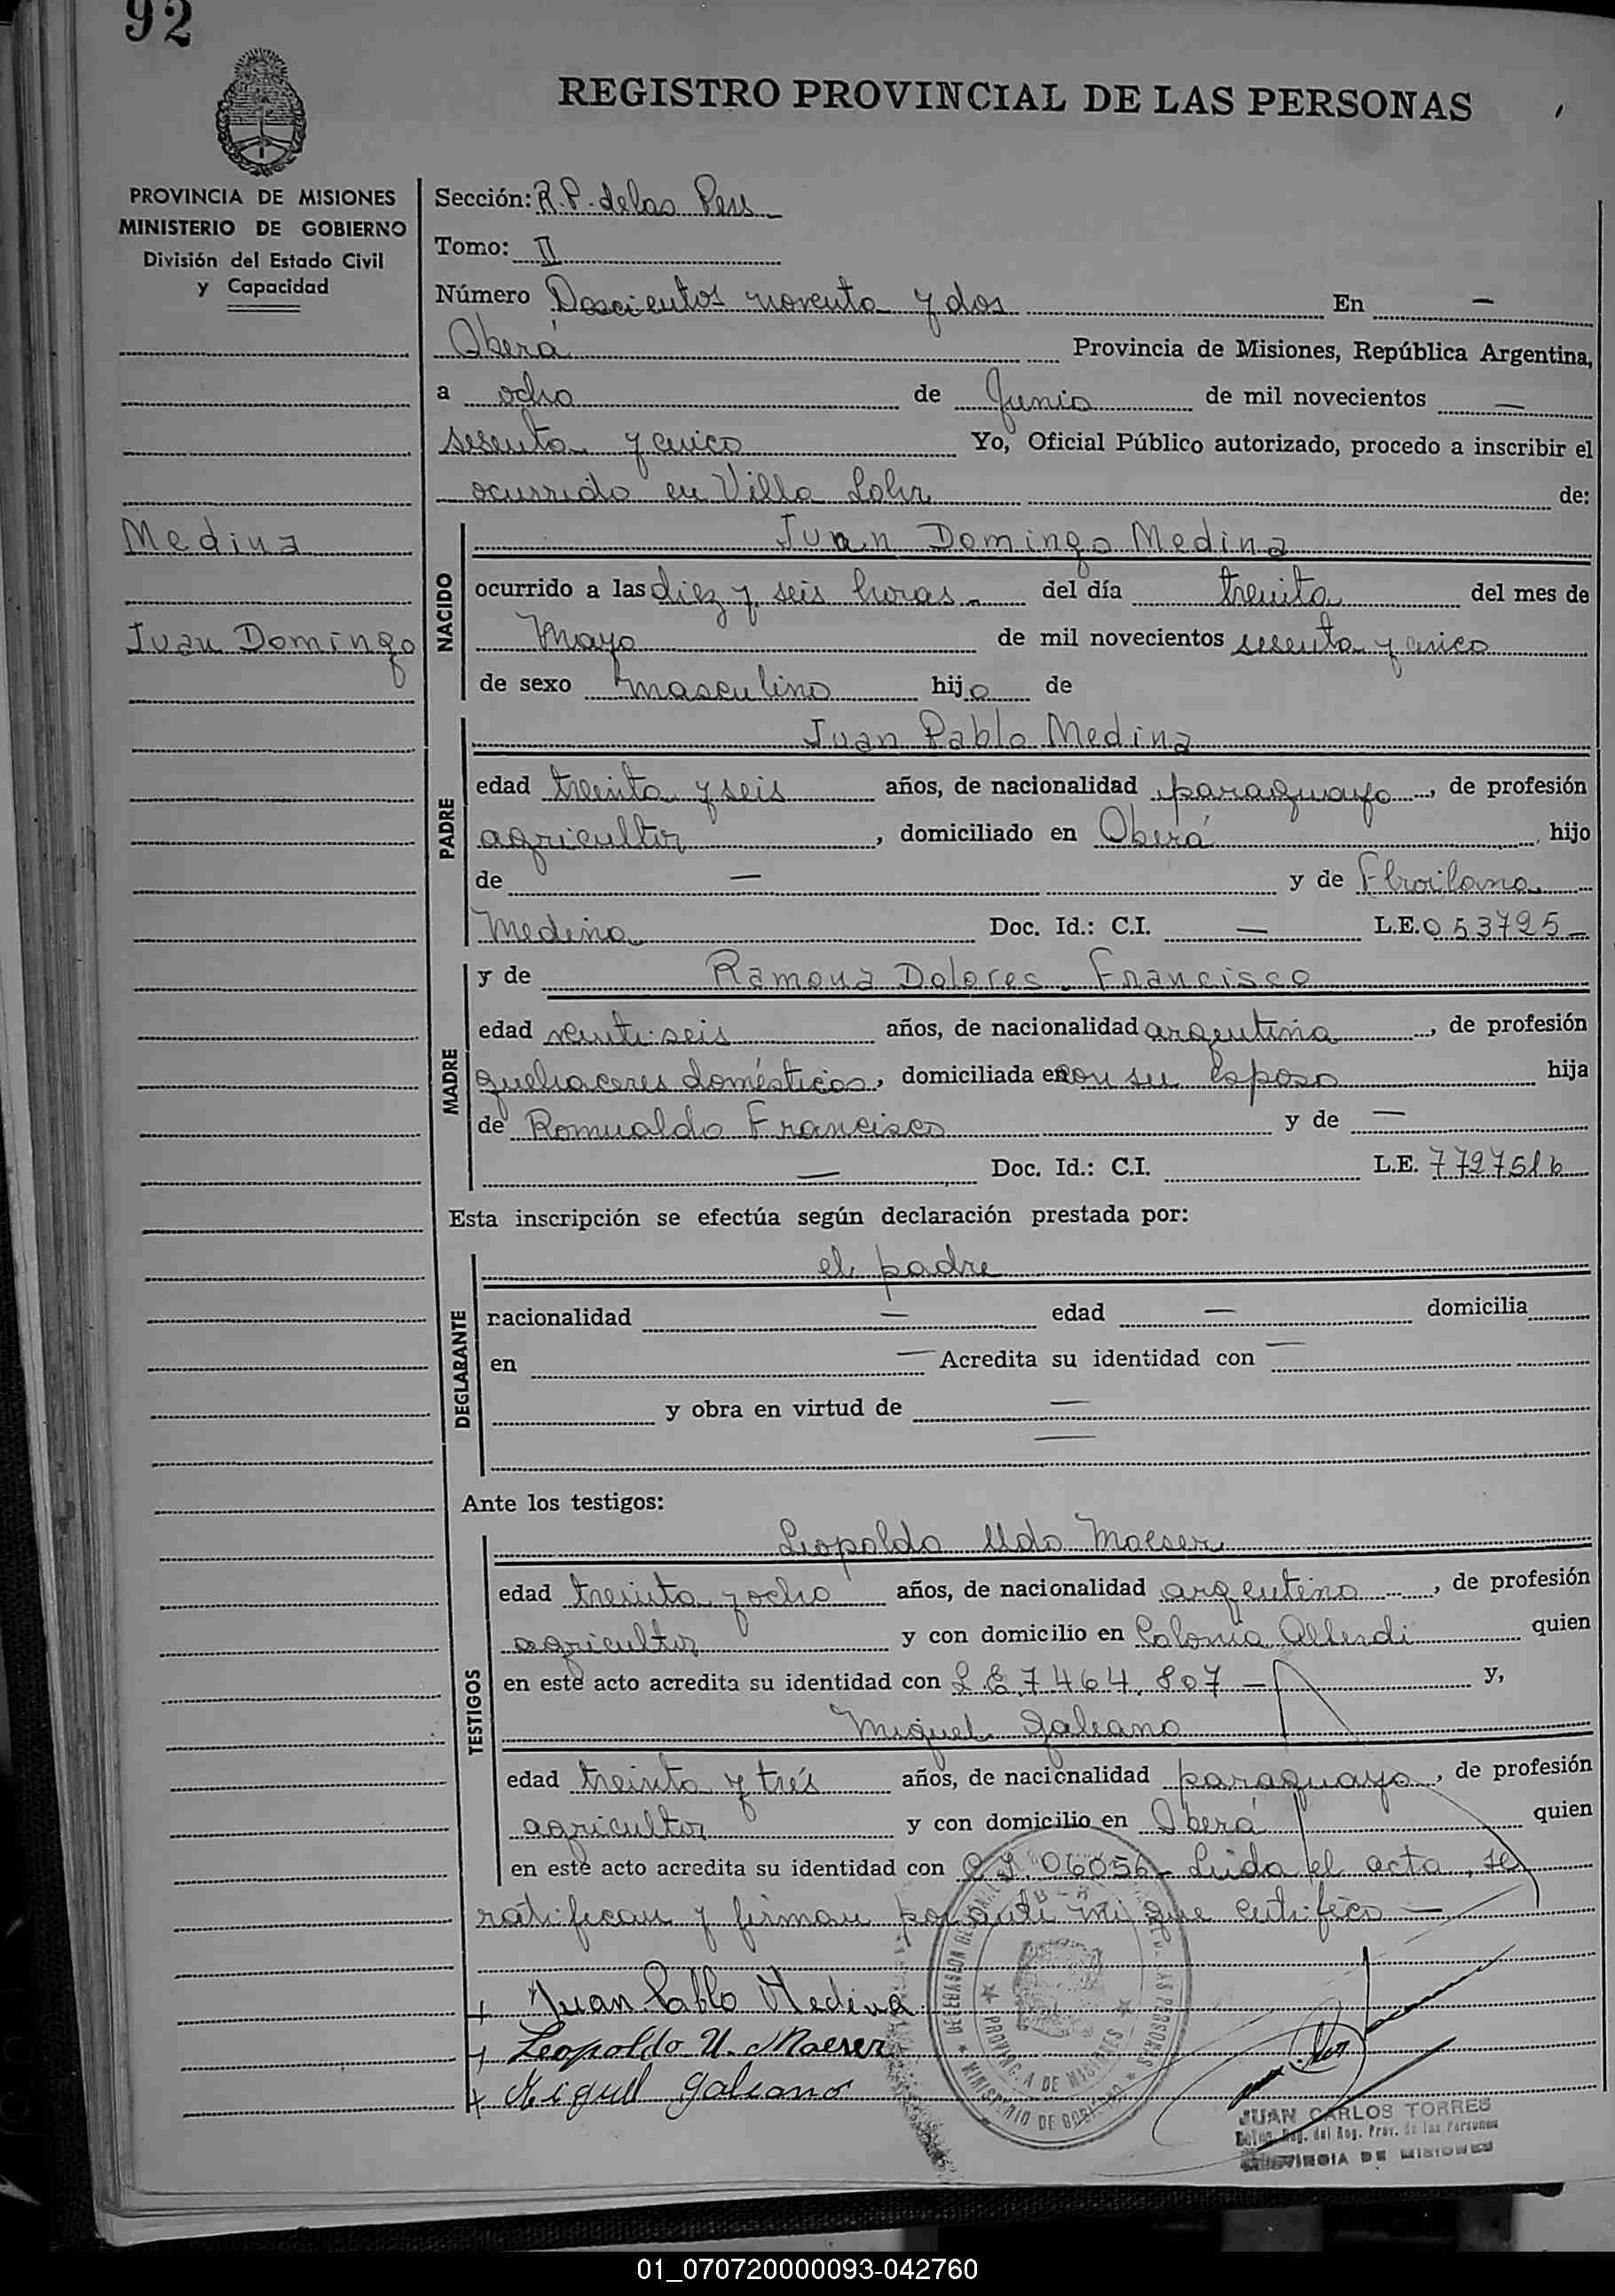 92
REGISTRO PROVINCIAL DE LAS PERSONAS
PROVINCIA DE MISIONES
MINISTERIO DE GOBIERNO
División del Estado Civil
y Capacidad
Sección: R.P. de las Pers
Tomo: II
Número Doscientos noventa y dos En —
Oberá Provincia de Misiones, República Argentina,
a ocho de Junio de mil novecientos —
sesenta y cinco Yo, Oficial Público autorizado, procedo a inscribir el
ocurrido en Villa Lohr de:
Medina
Juan Domingo
NACIDO
Juan Domingo Medina
ocurrido a las diez y seis horas del día treinta del mes de
Mayo de mil novecientos sesenta y cinco
de sexo masculino hijo de
PADRE
Juan Pablo Medina
edad treinta y seis años, de nacionalidad paraguayo, de profesión
agricultor, domiciliado en Oberá, hijo
de — y de Floilana
Medina Doc. Id.: C.I. — L.E. 053725 —
MADRE
y de Ramona Dolores Francisco
edad veintiseis años, de nacionalidad argentina, de profesión
quehaceres domésticos, domiciliada en con su esposo hija
de Romualdo Francisco y de —
— Doc. Id.: C.I. L.E. 7727516
Esta inscripción se efectúa según declaración prestada por:
DECLARANTE
el padre
nacionalidad — edad — domicilia
en — Acredita su identidad con —
y obra en virtud de —
—
Ante los testigos:
TESTIGOS
Leopoldo Udo Maeser
edad treinta y ocho años, de nacionalidad argentino, de profesión
agricultor y con domicilio en Colonia quien
en este acto acredita su identidad con L E 7.464.807 — y,
Miguel Galeano
edad treinta y trés años, de nacionalidad paraguayo, de profesión
agricultor y con domicilio en Oberá quien
en este acto acredita su identidad con C.I. 06056 — Leida el acta, la
ratifican y firman por ante mi que certifico —
+ Juan Pablo Medina
+ Leopoldo U. Maeser
+ Miguel Galeano
MINISTERIO DE GOBIERNO
PROVINCIA DE MISIONES
JUAN CARLOS TORRES
Deleg. Reg. del Reg. Prov. de las Personas
PROVINCIA DE MISIONES
01_070720000093-042760